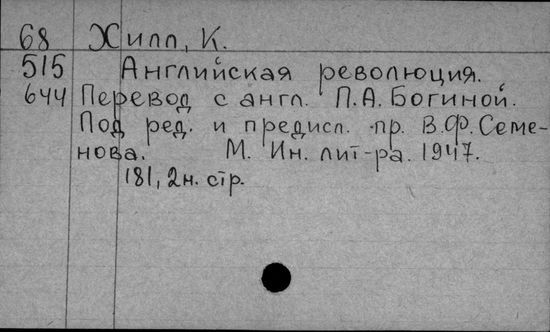 68 Хилл, К.
515 Английская революция.
644 Перевод с англ. П.А. Богиной.
Под ред. и предисл. пр. В.Ф. Семе-
нова. М. Ин. лит-ра. 1947.
181, 2н. стр.